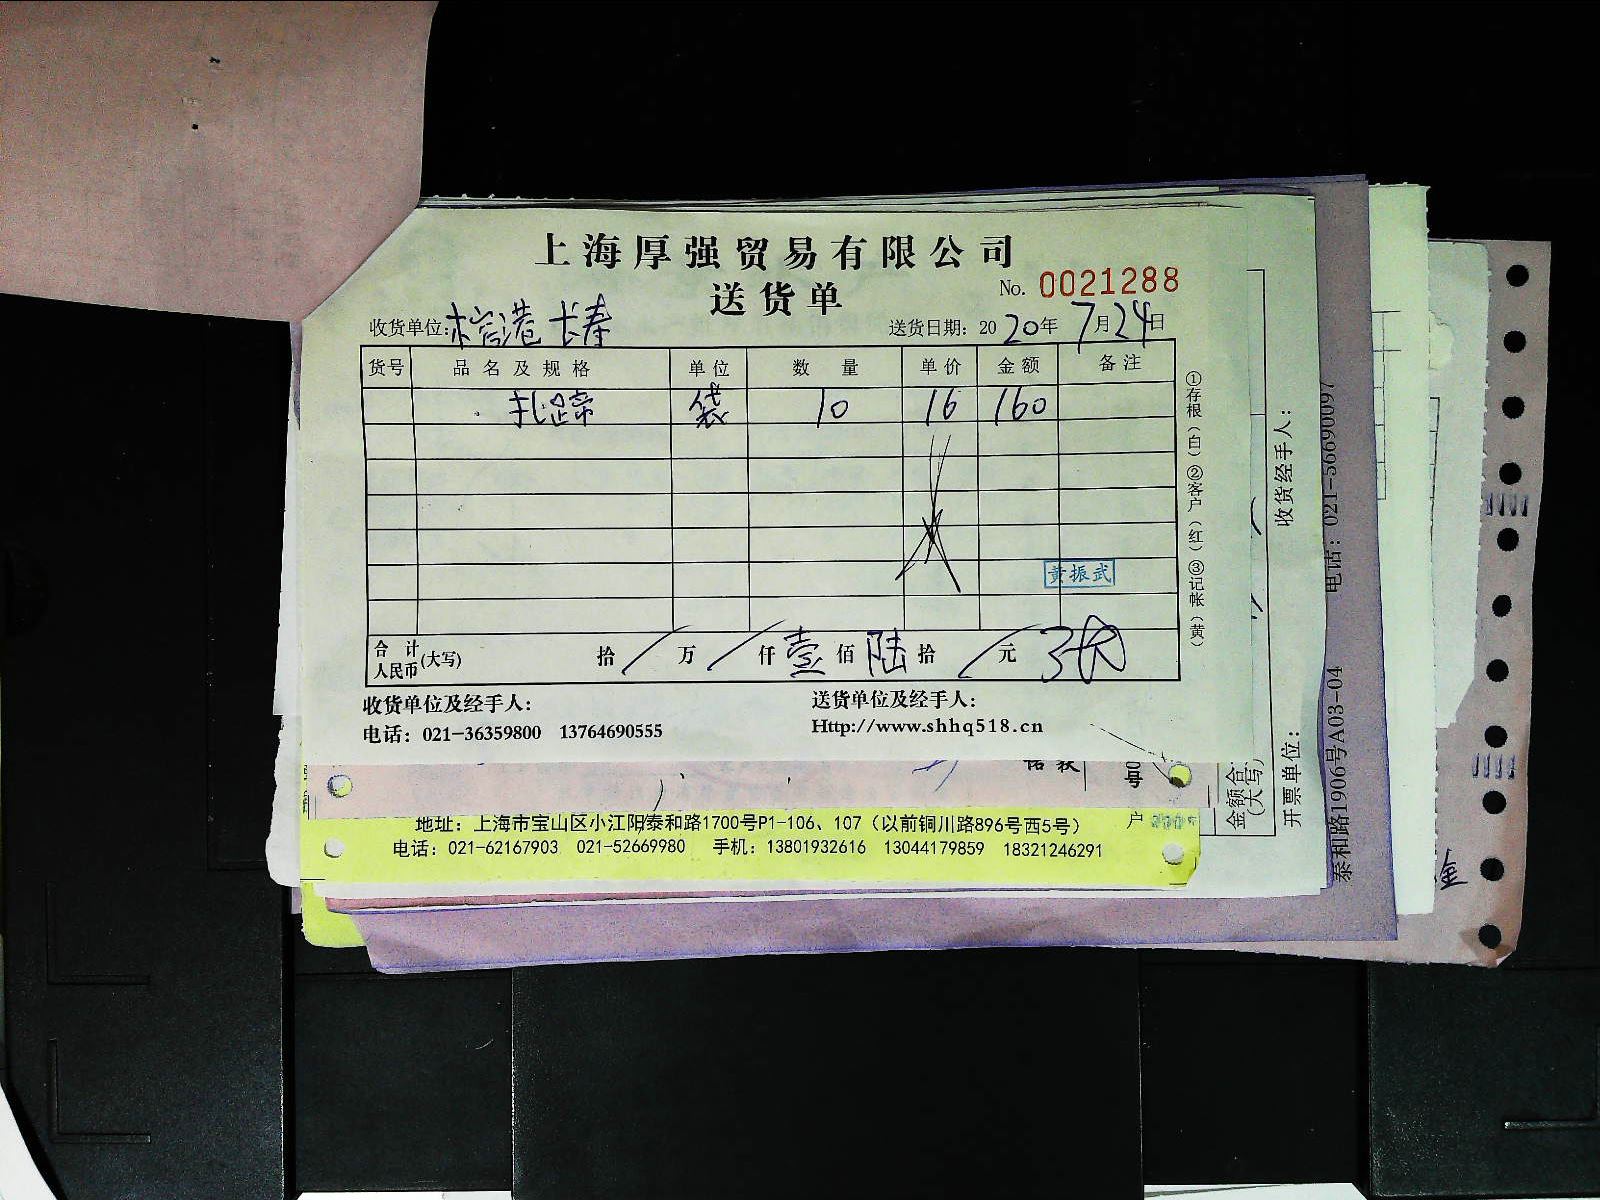 上海厚强贸易有限公司
送货单
No. 0021288
收货单位: 港 长寿
送货日期: 2020年7月24日
货号 品名及规格 单位 数量 单价 金额 备注
扎蹄 袋 10 16 160
黄振武
合计人民币(大写) 拾/万/仟壹佰陆拾/元
收货单位及经手人:
送货单位及经手人:
电话: 021-36359800 13764690555
Http://www.shhq518.cn
①存根(白)②客户(红)③记帐(黄)
收货经手人:
开票单位:
金额合
(大写)
电话: 021-56690097
泰和路1906号A03-04
号
户
地址: 上海市宝山区小江阳泰和路1700号P1-106、107 (以前铜川路896号西5号)
电话: 021-62167903 021-52669980 手机: 13801932616 13044179859 18321246291
金